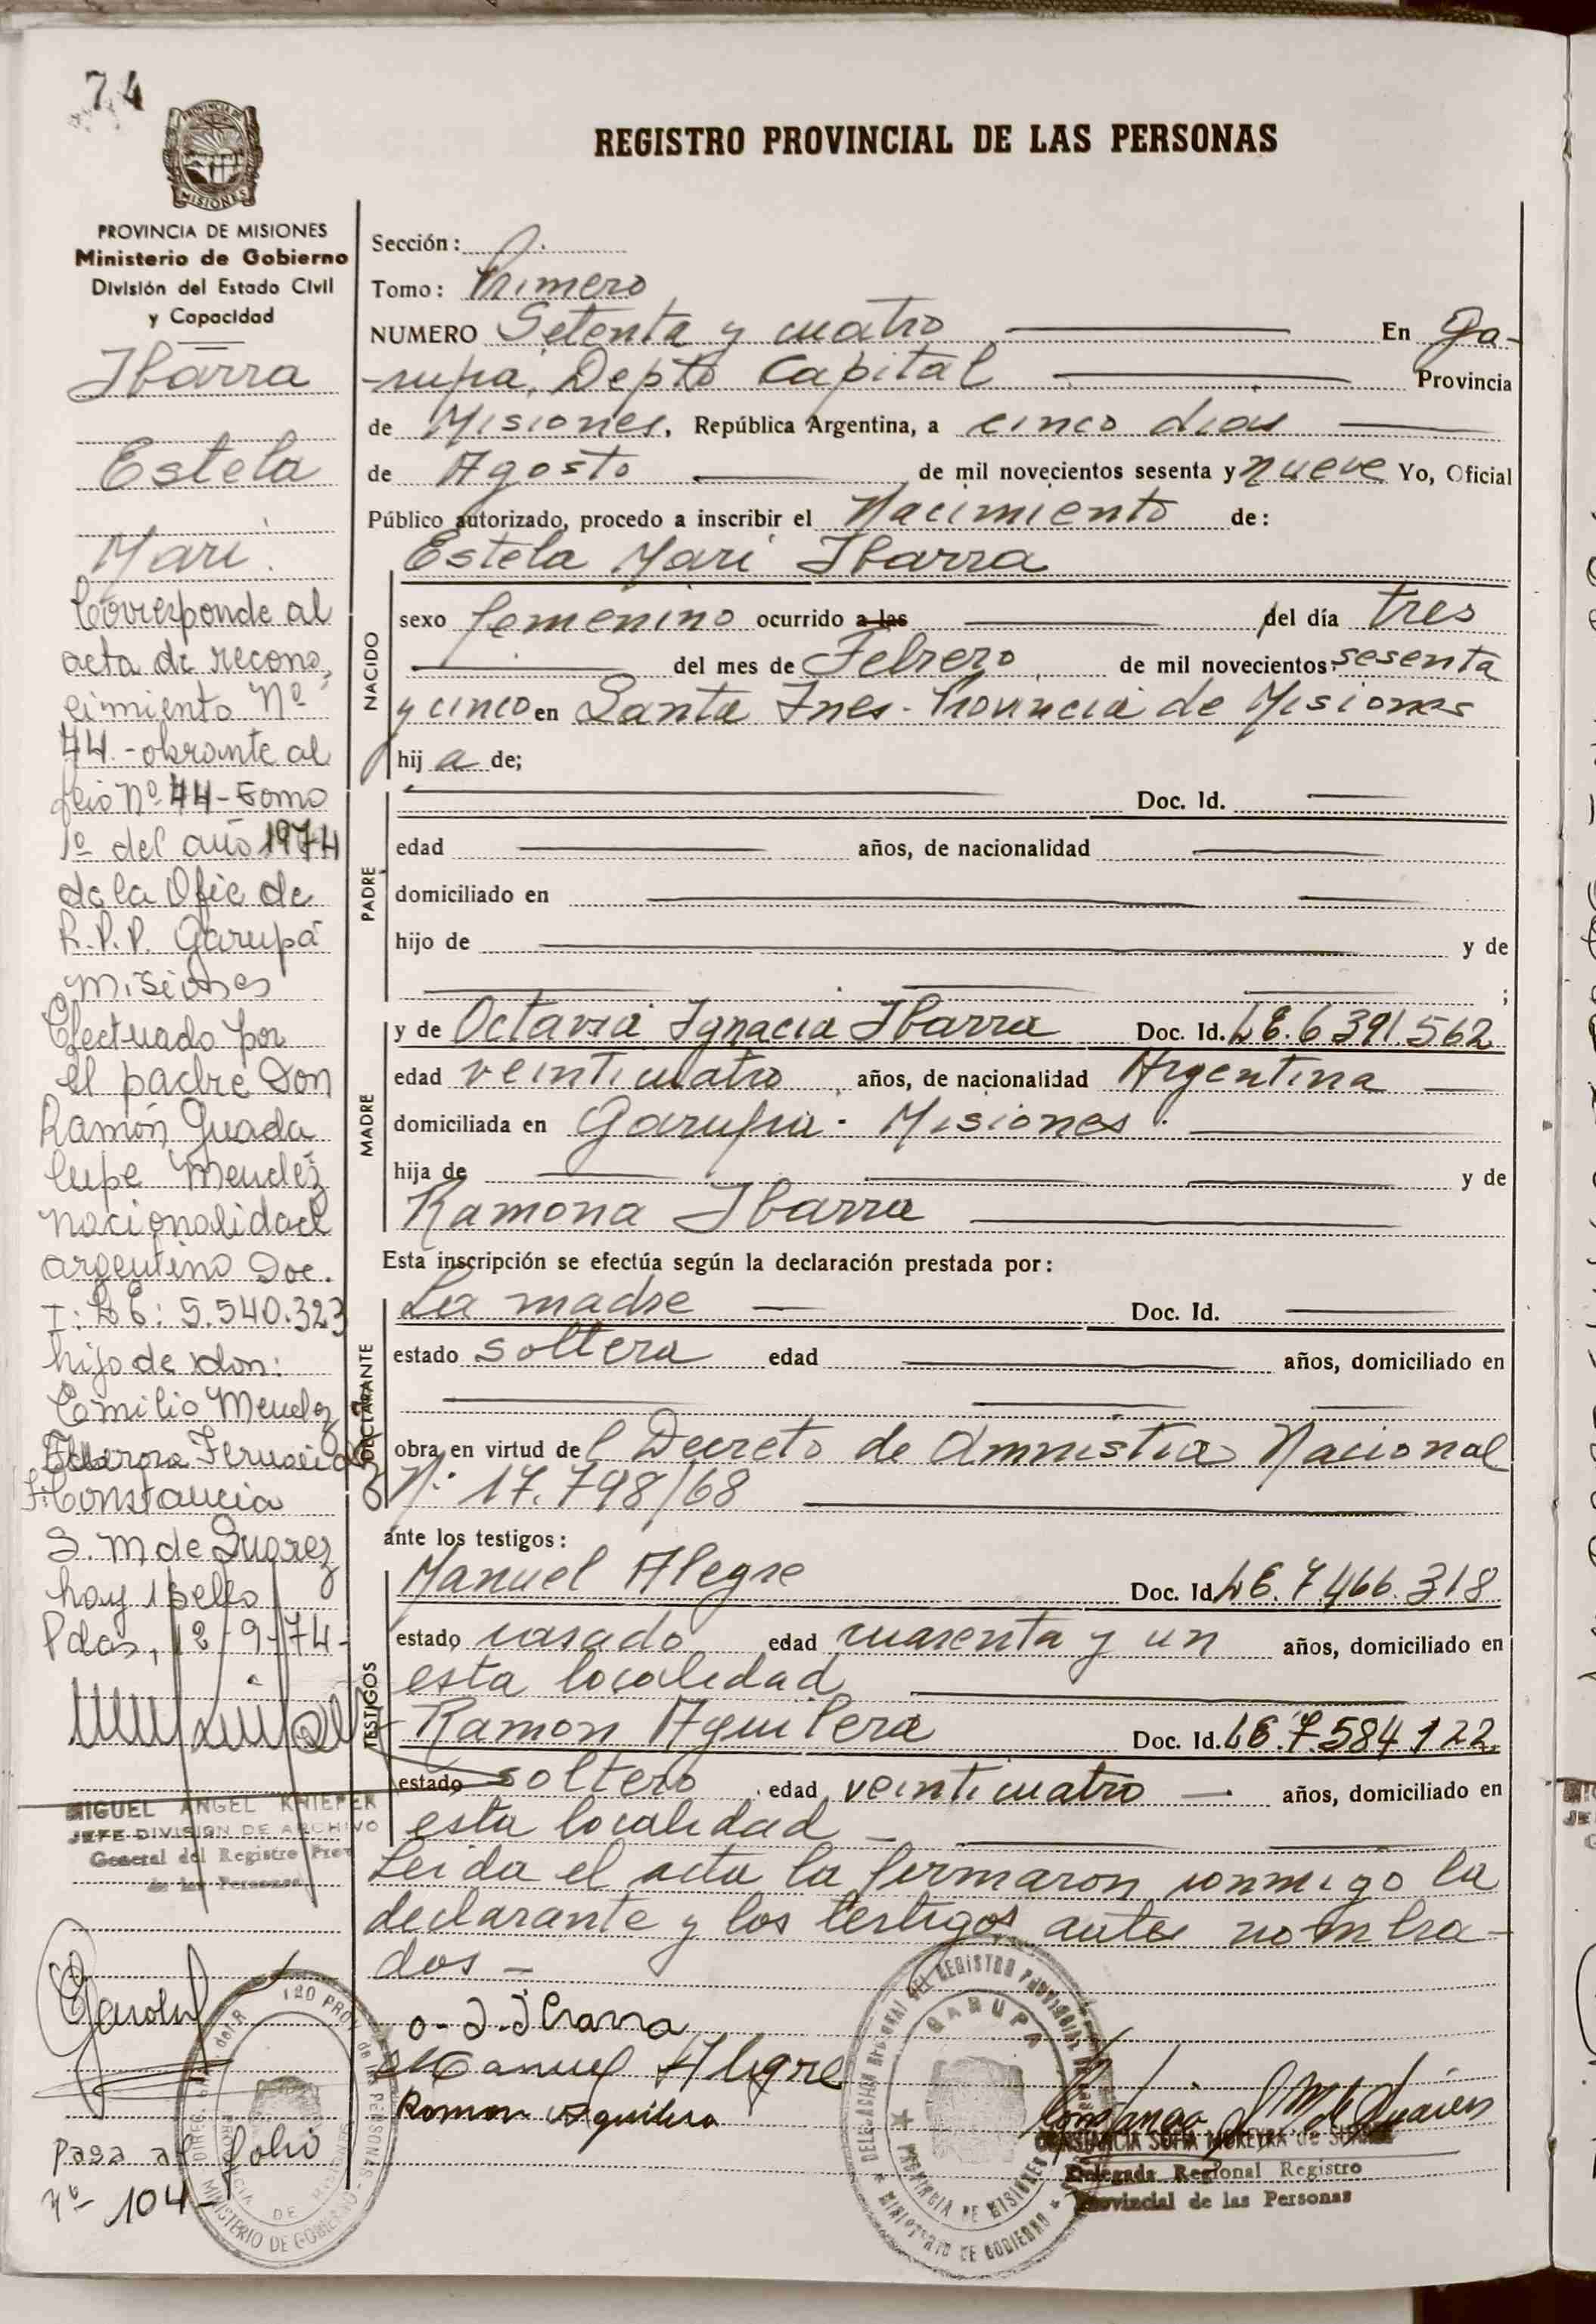 74
PROVINCIA DE
MISIONES
REGISTRO PROVINCIAL DE LAS PERSONAS
PROVINCIA DE MISIONES
Ministerio de Gobierno
División del Estado Civil
y Capacidad
Ibarra
Estela
Mari.
Corresponde al
acta de recono
cimiento Nº
74.-obrante al
folio Nº 74-Tomo
1º del año 1974
de la Ofic de
R.P.P. Garupá
Misiones
Efectuado por
el padre Don
Ramón Guada
lupe Mendez
nacionalidad
argentino Doc.
I: L E: 5.540.323
hijo de don:
Emilio Mendez
Constancia
S. M de Suarez
hay 1 sello
Pdas, 12-9-74-
MIGUEL ANGEL KNIEPER
JEFE DIVISION DE ARCHIVO
General del Registro Prov
de las Personas
Pasa al folio
Nº 104-
Sección:
Tomo: Primero
NUMERO Setenta y cuatro En Ga-
-rupa, Depto Capital Provincia
de Misiones, República Argentina, a cinco dias
de Agosto de mil novecientos sesenta y nueve Yo, Oficial
Público autorizado, procedo a inscribir el Nacimiento de:
Estela Mari Ibarra
NACIDO
sexo femenino ocurrido a las del día tres
del mes de Febrero de mil novecientos sesenta
y cinco en Santa Ines - Provincia de Misiones
hij a de;
PADRE
Doc. Id.
edad años, de nacionalidad
domiciliado en
hijo de y de
;
MADRE
y de Octavia Ignacia Ibarra Doc. Id. LE. 6391.562
edad veinticuatro años, de nacionalidad Argentina
domiciliada en Garupa - Misiones.
hija de y de
Ramona Ibarra
Esta inscripción se efectúa según la declaración prestada por:
DECLARANTE
La madre Doc. Id.
estado soltera edad años, domiciliado en
obra en virtud del Decreto de Amnistia Nacional
Nº: 17.798/68
ante los testigos:
TESTIGOS
Manuel Alegre Doc. Id. LE. 7.466.318
estado casado edad cuarenta y un años, domiciliado en
esta localidad
Ramon Aguilera Doc. Id. LE. 7.584.122.
estado soltero edad veinticuatro años, domiciliado en
esta localidad
Leida el acta la firmaron conmigo la
declarante y los testigos antes nombra-
dos -
O. I. Ibarra
Manuel Alegre
Ramon Aguilera
DELEGACION REGIONAL DEL REGISTRO PROVINCIAL
GARUPA
PROVINCIA DE MISIONES
MINISTERIO DE GOBIERNO
MINISTERIO DE GOBIERNO
CONSTANCIA SOFIA MOREYRA de SUAREZ
Delegada Regional Registro
Provincial de las Personas